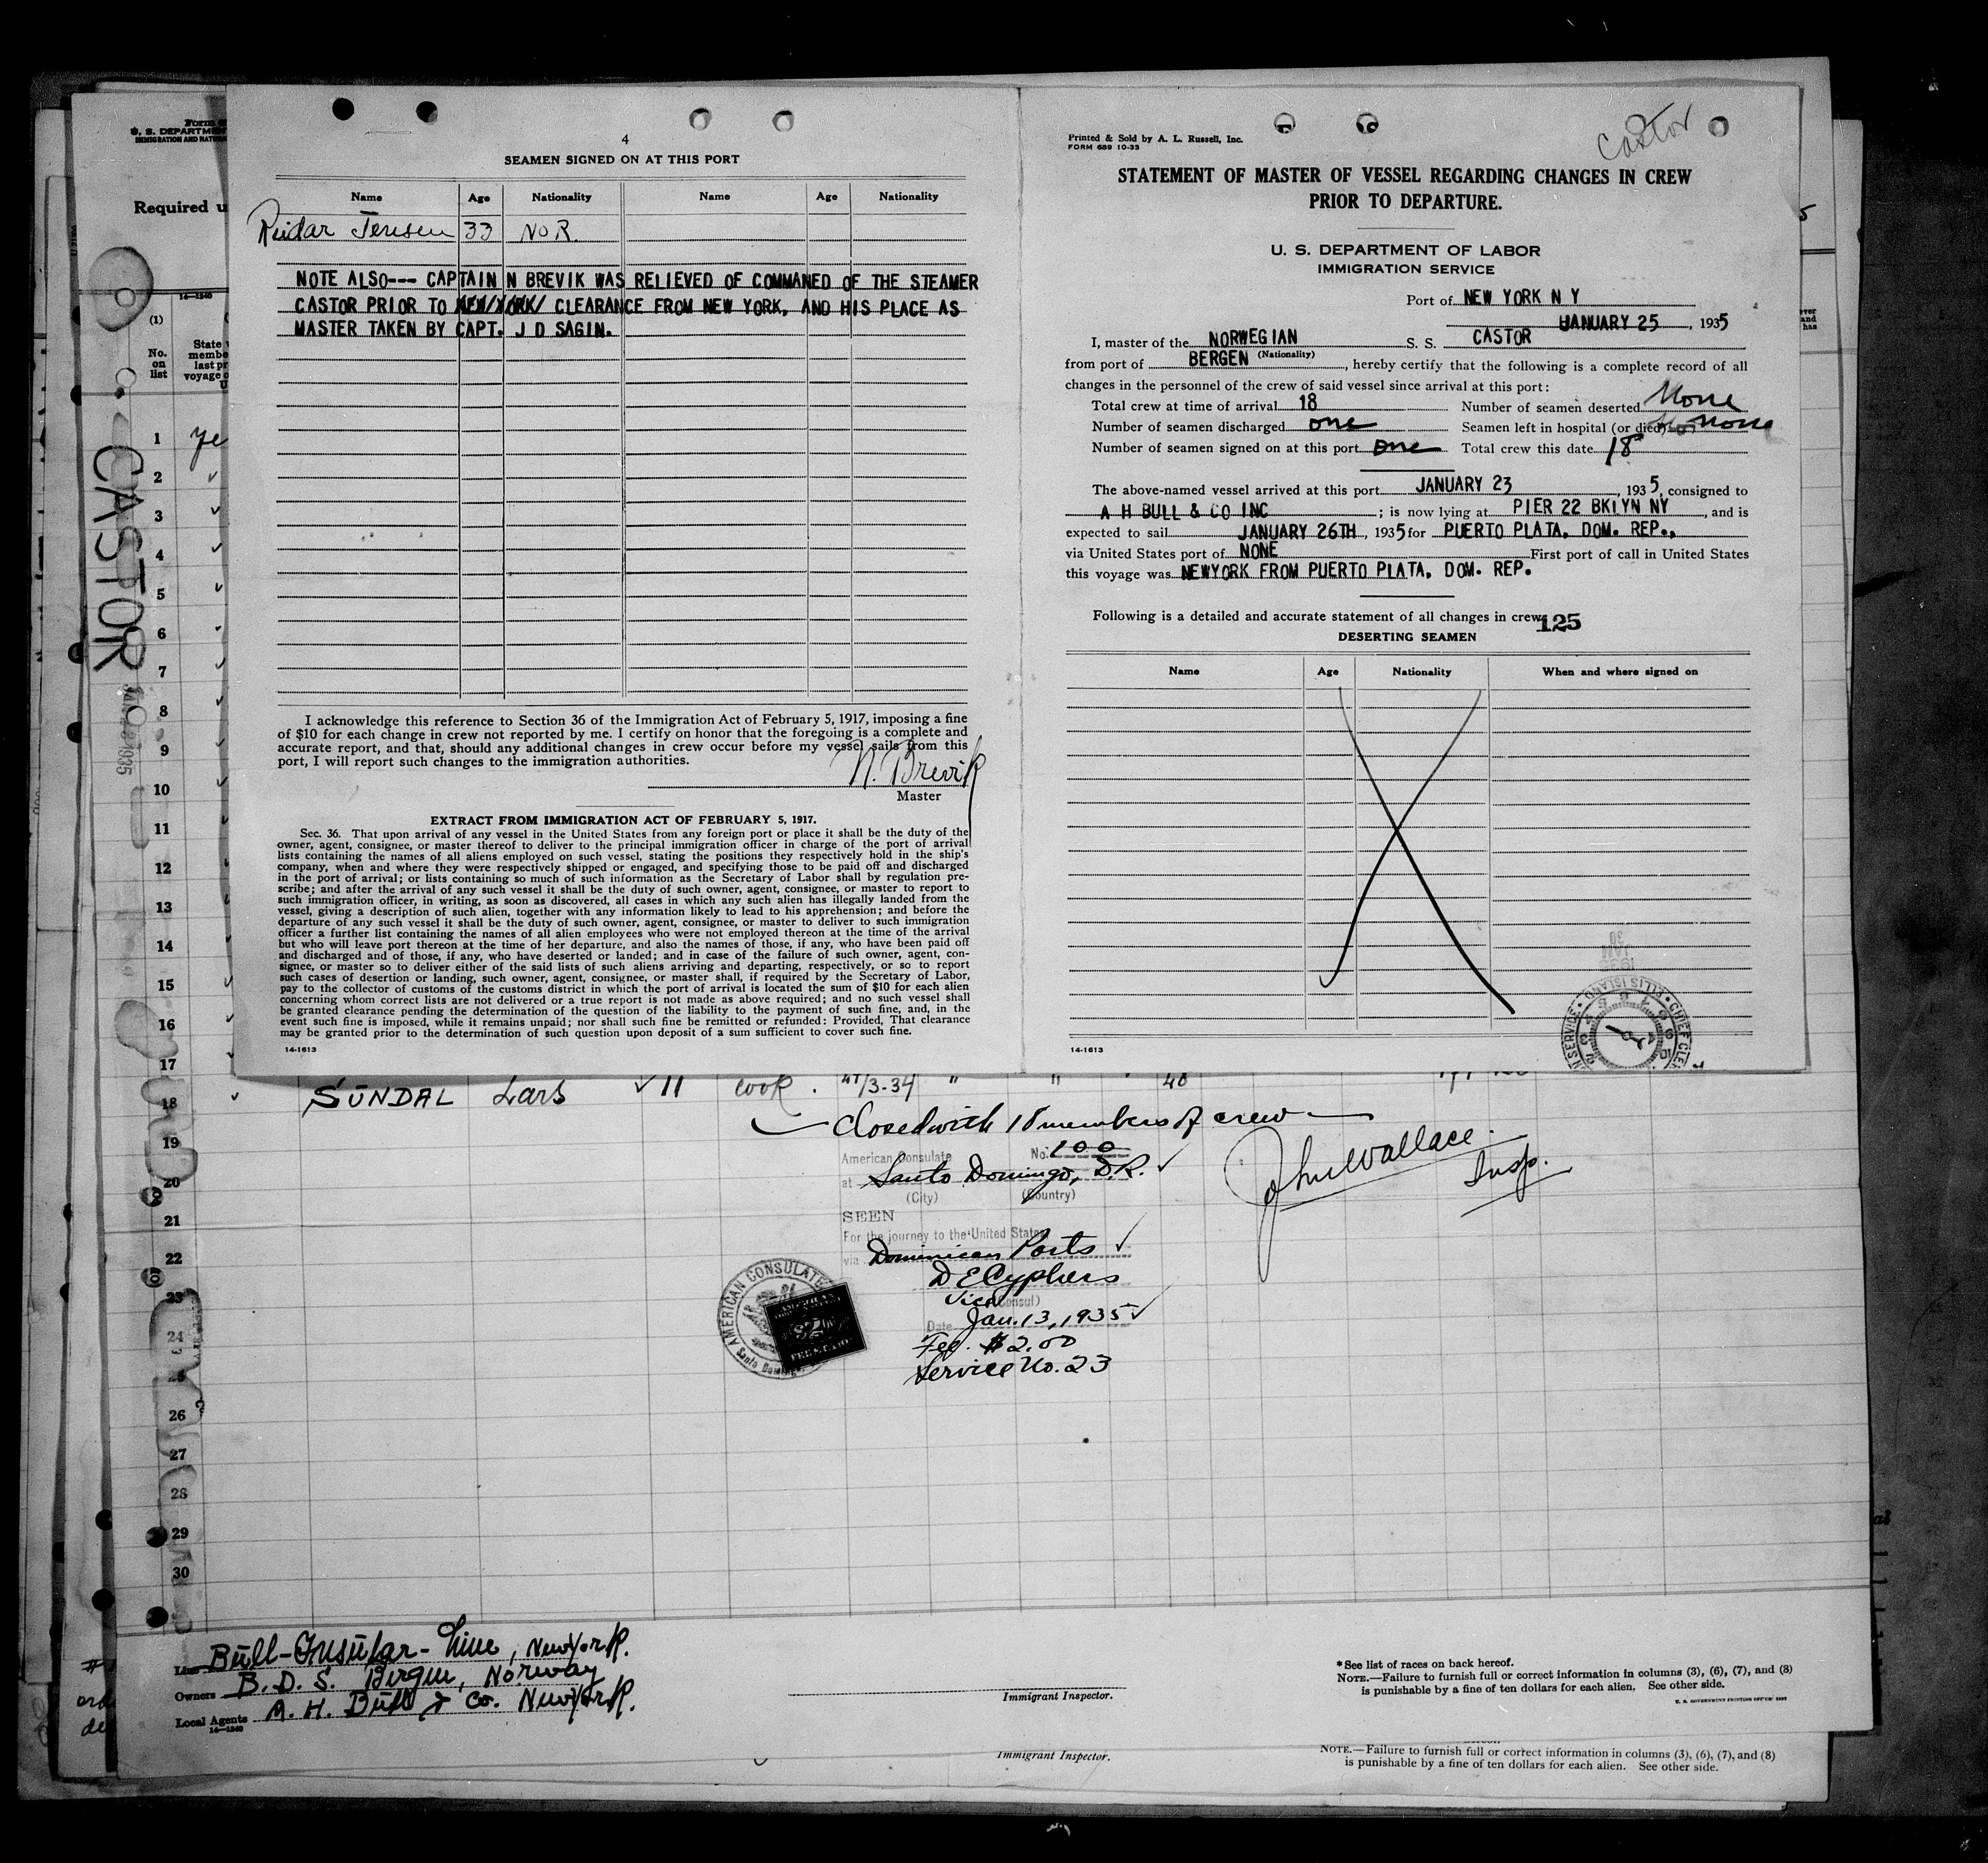 4
SEAMEN SIGNED ON AT THIS PORT
Name Age Nationality Name Age Nationality
Reidar Jensen 33 NOR.
NOTE ALSO--- CAPTAIN N BREVIK WAS RELIEVED OF COMMANED OF THE STEAMER
CASTOR PRIOR TO NEW/YORK/ CLEARANCE FROM NEW YORK, AND HIS PLACE AS
MASTER TAKEN BY CAPT. J D SAGIN.
I acknowledge this reference to Section 36 of the Immigration Act of February 5, 1917, imposing a fine
of $10 for each change in crew not reported by me. I certify on honor that the foregoing is a complete and
accurate report, and that, should any additional changes in crew occur before my vessel sails from this
port, I will report such changes to the immigration authorities.
N. Brevik
Master
EXTRACT FROM IMMIGRATION ACT OF FEBRUARY 5, 1917.
Sec. 36. That upon arrival of any vessel in the United States from any foreign port or place it shall be the duty of the
owner, agent, consignee, or master thereof to deliver to the principal immigration officer in charge of the port of arrival
lists containing the names of all aliens employed on such vessel, stating the positions they respectively hold in the ship's
company, when and where they were respectively shipped or engaged, and specifying those to be paid off and discharged
in the port of arrival; or lists containing so much of such information as the Secretary of Labor shall by regulation pre-
scribe; and after the arrival of any such vessel it shall be the duty of such owner, agent, consignee, or master to report to
such immigration officer, in writing, as soon as discovered, all cases in which any such alien has illegally landed from the
vessel, giving a description of such alien, together with any information likely to lead to his apprehension; and before the
departure of any such vessel it shall be the duty of such owner, agent, consignee, or master to deliver to such immigration
officer a further list containing the names of all alien employees who were not employed thereon at the time of the arrival
but who will leave port thereon at the time of her departure, and also the names of those, if any, who have been paid off
and discharged and of those, if any, who have deserted or landed; and in case of the failure of such owner, agent, con-
signee, or master so to deliver either of the said lists of such aliens arriving and departing, respectively, or so to report
such cases of desertion or landing, such owner, agent, consignee, or master shall, if required by the Secretary of Labor,
pay to the collector of customs of the customs district in which the port of arrival is located the sum of $10 for each alien
concerning whom correct lists are not delivered or a true report is not made as above required; and no such vessel shall
be granted clearance pending the determination of the question of the liability to the payment of such fine, and, in the
event such fine is imposed, while it remains unpaid; nor shall such fine be remitted or refunded: Provided, That clearance
may be granted prior to the determination of such question upon deposit of a sum sufficient to cover such fine.
14-1613
Castor
Printed & Sold by A. L. Russell, Inc.
FORM 689 10-33
STATEMENT OF MASTER OF VESSEL REGARDING CHANGES IN CREW
PRIOR TO DEPARTURE.
U. S. DEPARTMENT OF LABOR
IMMIGRATION SERVICE
Port of NEW YORK N Y
JANUARY 25, 1935
I, master of the NORWEGIAN S. S. CASTOR
(Nationality)
from port of BERGEN, hereby certify that the following is a complete record of all
changes in the personnel of the crew of said vessel since arrival at this port:
Total crew at time of arrival 18 Number of seamen deserted None
Number of seamen discharged one Seamen left in hospital (or died) None
Number of seamen signed on at this port one Total crew this date 18
The above-named vessel arrived at this port JANUARY 23, 1935, consigned to
A H BULL & CO INC; is now lying at PIER 22 BKLYN NY, and is
expected to sail JANUARY 26TH, 1935 for PUERTO PLATA, DOM. REP.,
via United States port of NONE First port of call in United States
this voyage was NEWYORK FROM PUERTO PLATA, DOM. REP.
Following is a detailed and accurate statement of all changes in crew:
125
DESERTING SEAMEN
Name Age Nationality When and where signed on
14-1613
CHIEF CLE
ELLIS ISLAND
JAN 30 1935
Form
U. S. DEPARTM
IMMIGRATION AND NATU
Required u
14-1240
(1)
No.
on
list
State
membe
last pr
voyage
U
CASTOR
1 ye
2
3
4
5
6
7
8
9
10
11
12
13
14
15
16
17
18 SUNDAL Lars 11 Cook. /3-34 " " 40
19 Closed with 18 members of crew
20
21
22
23
24
25
26
27
28
29
30
American Consulate No. 100
at Santo Domingo, D.R.
(City) (Country)
SEEN
For the journey to the United States
via Dominican Ports
D E Cyphers
Vice Consul)
Date Jan. 13, 1935
Fee. $2.00
Service No. 23
AMERICAN CONSULATE
Santo Domingo
John Wallace.
Insp.
Line Bull-Insular-Line, New York.
Owners B. D. S. Bergen, Norway
Local Agents A. H. Bull & Co. New York.
14-1240
Immigrant Inspector.
*See list of races on back hereof.
NOTE.—Failure to furnish full or correct information in columns (3), (6), (7), and (8)
is punishable by a fine of ten dollars for each alien. See other side.
Immigrant Inspector.
NOTE.—Failure to furnish full or correct information in columns (3), (6), (7), and (8)
is punishable by a fine of ten dollars for each alien. See other side.